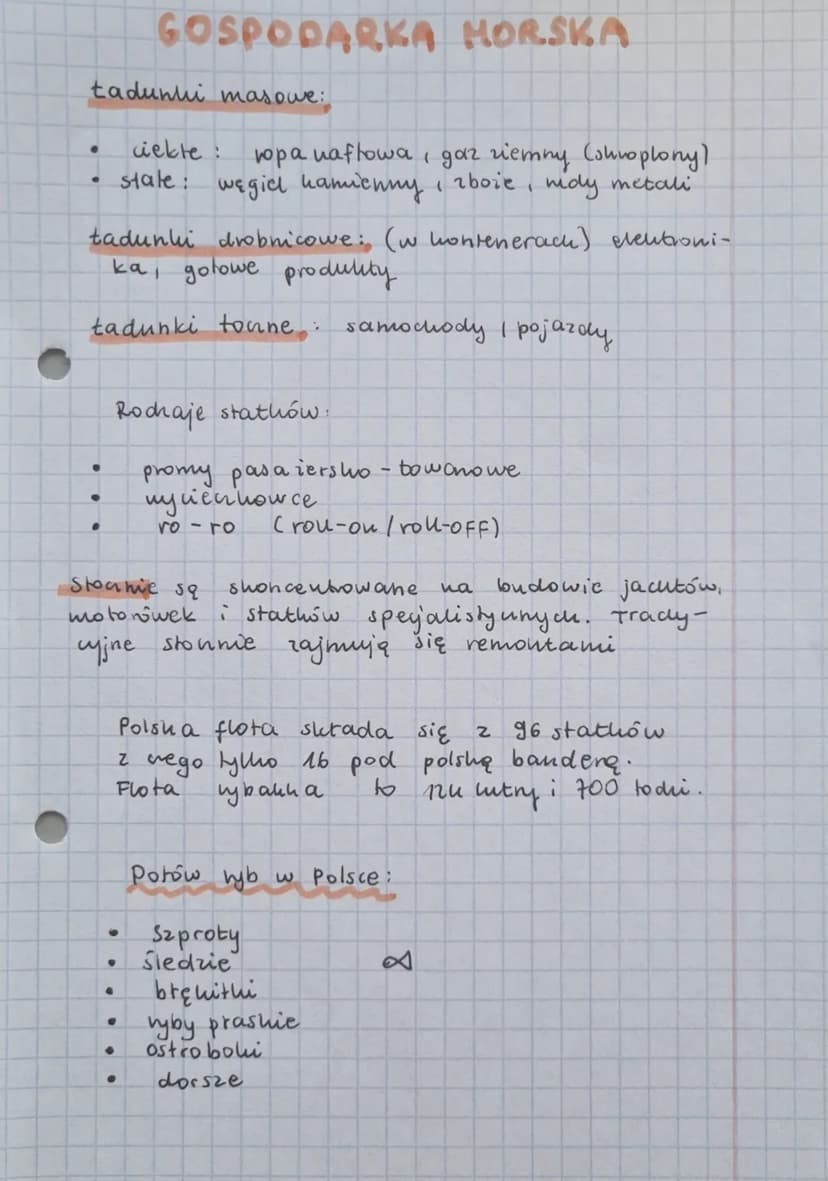 GOSPODARKA MORSKA
Ładunki masowe:
• ciekłe: ropa naftowa, gaz ziemny (skroplony)
• stałe: węgiel kamienny, zboże, rudy metali
Ładunki drobnicowe: (w kontenerach) elektroni-
ka, gotowe produkty
Ładunki toczne: samochody, pojazdy
Rodzaje statków:
• promy pasażersko-towarowe
• wycieczkowce
• ro-ro (roll-on/roll-OFF)
Stocznie są skoncentrowane na budowie jachtów,
motorówek i statków specjalistycznych. Trady-
cyjne stocznie zajmują się remontami
Polska flota składa się z 96 statków
z czego tylko 16 pod polską banderą.
Flota rybacka to 124 kutry i 700 łodzi.
Połów ryb w Polsce:
• Szproty
• śledzie
• błękitki
• ryby płaskie
• ostroboki
• dorsze